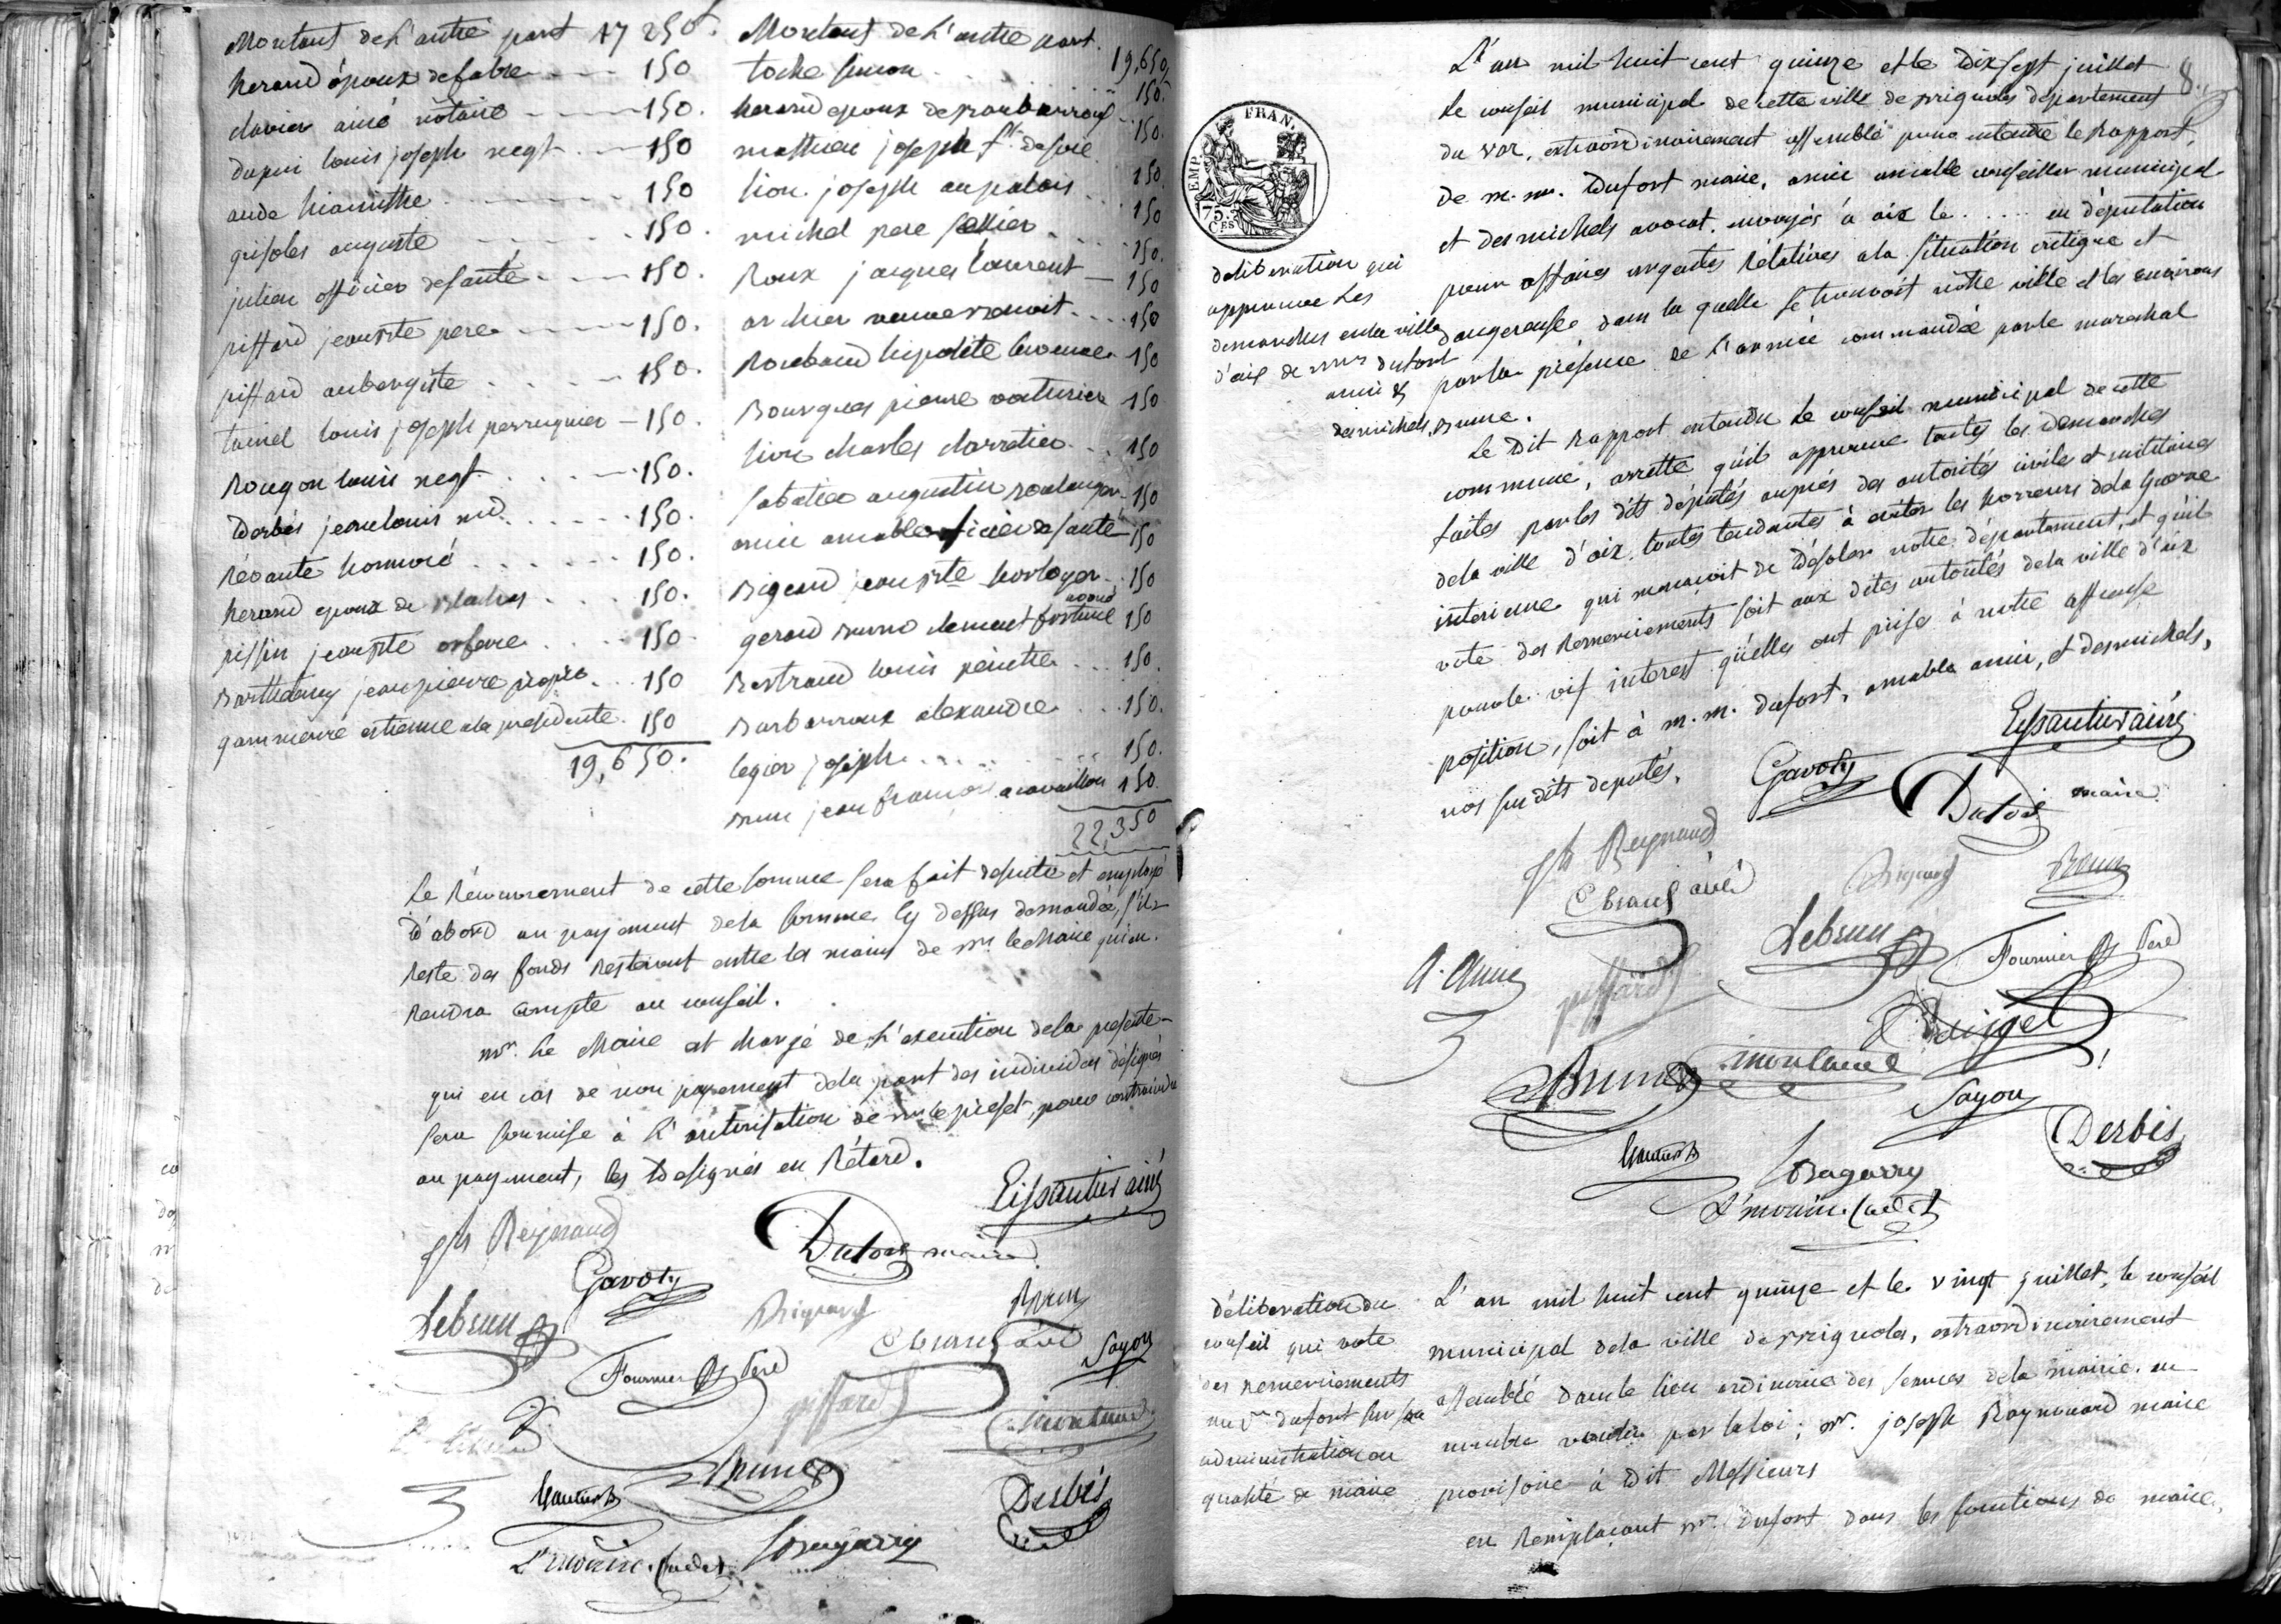 Montant de l'autre part 17 250f.
herand époux defabre 150
clavier ainé nottaire 150.
dupui louis joseph negt 150
aude hiacinthe 150
grisoles auguste 150.
julien officier desanté 150.
piffard jeanpte pere 150.
piffard aubergiste 150.
louis joseph perruquier 150.
Rougon louis negt 150.
Derbés jeanlouis md 150.
honnoré 150.
herand epoux de 150.
pissin jeanpte orfevre 150
Barthelemy jeanpierre 150
estienne ala presidente 150
19,650.
Montant de l'autre part. 19,650
toche simon 150.
herand epoux de 150.
mathieu joseph ft. desoie 150
lion joseph aupalais 150
michel pere sellier 150.
Roux jacques laurent 150
archier veuve benoit 150
Roubaud hipolite 150
Bourgues pierre voiturier 150
lion charles charretier 150
sabatier augustin boulanger 150
amic amable officier desanté 150
Rigaud jeanpte horloger 150
gerard bruno clement fortuné 150
avoué
Bertrand louis peintre 150.
Barbarroux alexandre 150.
legier joseph 150.
brun jean françois 150
22,350
Le Recouvrement de cette somme sera fait desuite et employé
d'abord au payement dela somme cy dessus demandée, s'il
reste des fonds resteront entre les mains de mr le Maire qui en
rendra compte au conseil.
mr. Le Maire est chargé de l'execution dela presente
qui en cas de non payement dela part des individus désignés
sera soumise à l'autorisation de mr le prefet, pour contraindre
au payement, les Designés en Rétard.
Eissautier ainé
Jh Reynaud
Gavoty
Dufort maire
Lebrun
Brun
Fournier Pere
Sayou
piffard
Brun
Gautier
Derbès
Bagarry
L'. cadet
8.
FRAN.
EMP.
75.
CES
L'an mil huit cent quinze et le Dixsept juillet
Le conseil municipal de cette ville de Brignoles département
du var, extraordinairement assemblé pour entendre le Rapport,
de m. m. Dufort maire, amic amable conseiller municipal
et desmichels avocat. envoyés à aix le ..... en députation
pour affaires urgentes Rélatives ala situation critique et
dangereuse dans la quelle se trouvoit notre ville et les environs
par la présence de l'armée commandée par le marechal
Brune.
deliberation qui
approuve les
demarches enla ville
d'aix de mrs dufort
amic &
desmichels
Le Dit Rapport entendu Le conseil municipal de cette
commune, arrette qu'il approuve toutes les demarches
faites par les dits députés auprès des autorités civiles et militaires
dela ville d'aix. toutes tendantes à éviter les horreurs dela guerre
interieure qui menaçoit de Désoler notre département, et qu'il
vote des Remerciements soit aux dites autorités dela ville d'aix
pour le vif interest qu'elles ont prise à notre affreuse
position, soit à m. m. dufort, amable amic, et desmichels,
nos susdits deputés.
Eissautier ainé
Gavoty
Dufort maire
Jh Reynaud
Brun
Lebrun
Fournier Pere
A. Amic
piffard
Brun
Sayou
Gautier
Derbès
Bagarry
L'. cadet
déliberation du
conseil qui vote
des remerciements
au Sr dufort sur sa
administration en
qualité de maire
L'an mil huit cent quinze et le vingt juillet, le conseil
municipal dela ville de Brignoles, extraordinairement
assemblé dans le lieu ordinaire des seances dela mairie. en
nombre voulu par la loi; mr. joseph Raynouard maire
provisoire à Dit Messieurs
en Remplacant mr. Dufort dans les fonctions de maire,